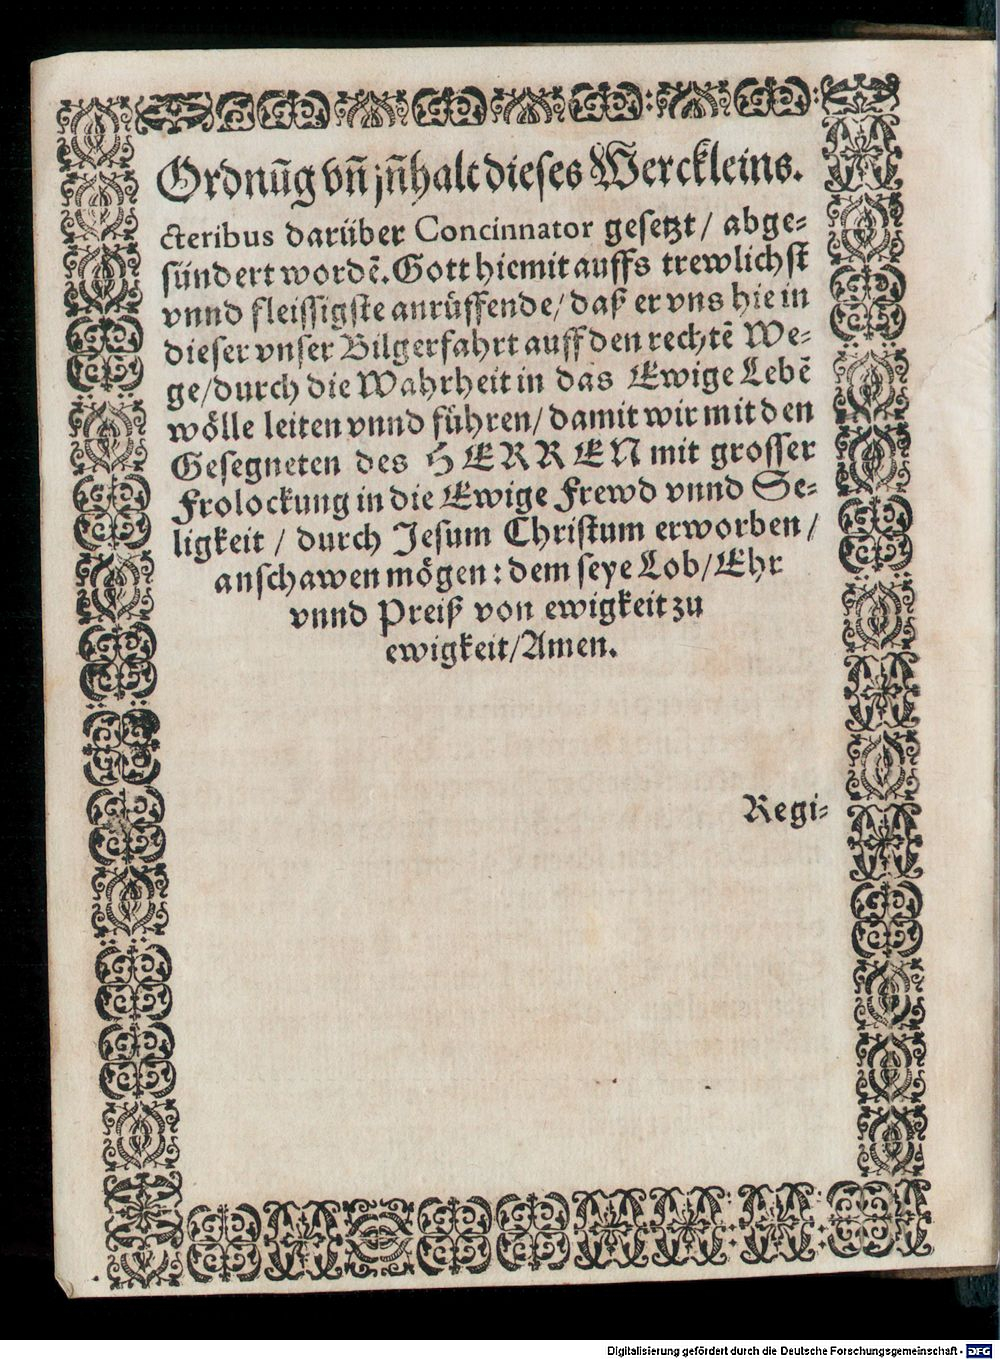 Ordnūg vñ jñhalt dieses Werckleins.
cteribus darüber Concinnator gesetzt / abge-
sündert wordē. Gott hiemit auffs trewlichst
vnnd fleissigste anrüffende / daß er vns hie in
dieser vnser Bilgerfahrt auff den rechtē We-
ge / durch die Wahrheit in das Ewige Lebē
wölle leiten vnnd führen / damit wir mit den
Gesegneten des HERREN mit grosser
Frolockung in die Ewige Frewd vnnd Se-
ligkeit / durch Jesum Christum erworben /
anschawen mögen : dem seye Lob / Ehr
vnnd Preiß von ewigkeit zu
ewigkeit / Amen.
Regi-
Digitalisierung gefördert durch die Deutsche Forschungsgemeinschaft - DFG